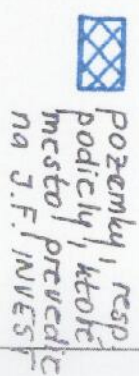 pozemky, resp
podiely, ktoré
mesto prevedie
na J.F. INVEST